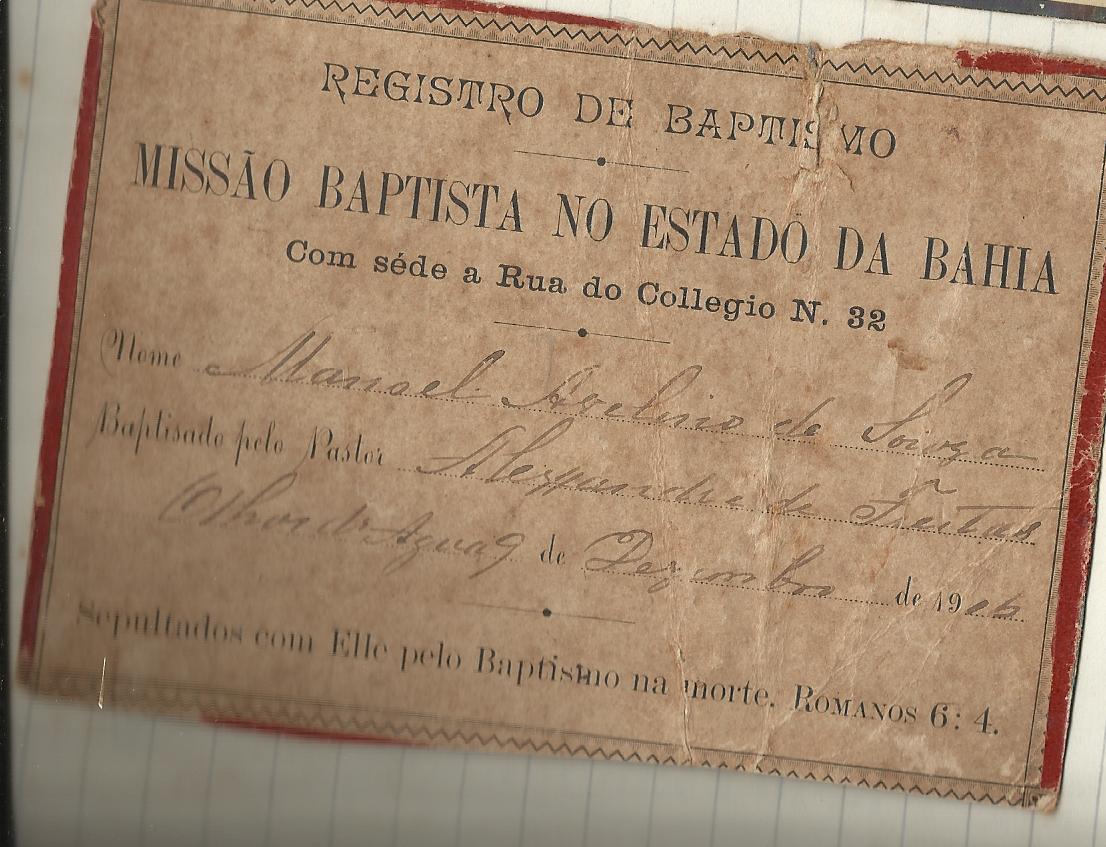 REGISTRO DE BAPTISMO
MISSÃO BAPTISTA NO ESTADO DA BAHIA
Com séde a Rua do Collegio N. 32
Nome Manoel Avelino de Souza
Baptisado pelo Pastor Alexandre de Freitas
Olhos d'Agua 9 de Dezembro de 1906
Sepultados com Elle pelo Baptismo na morte. ROMANOS 6: 4.